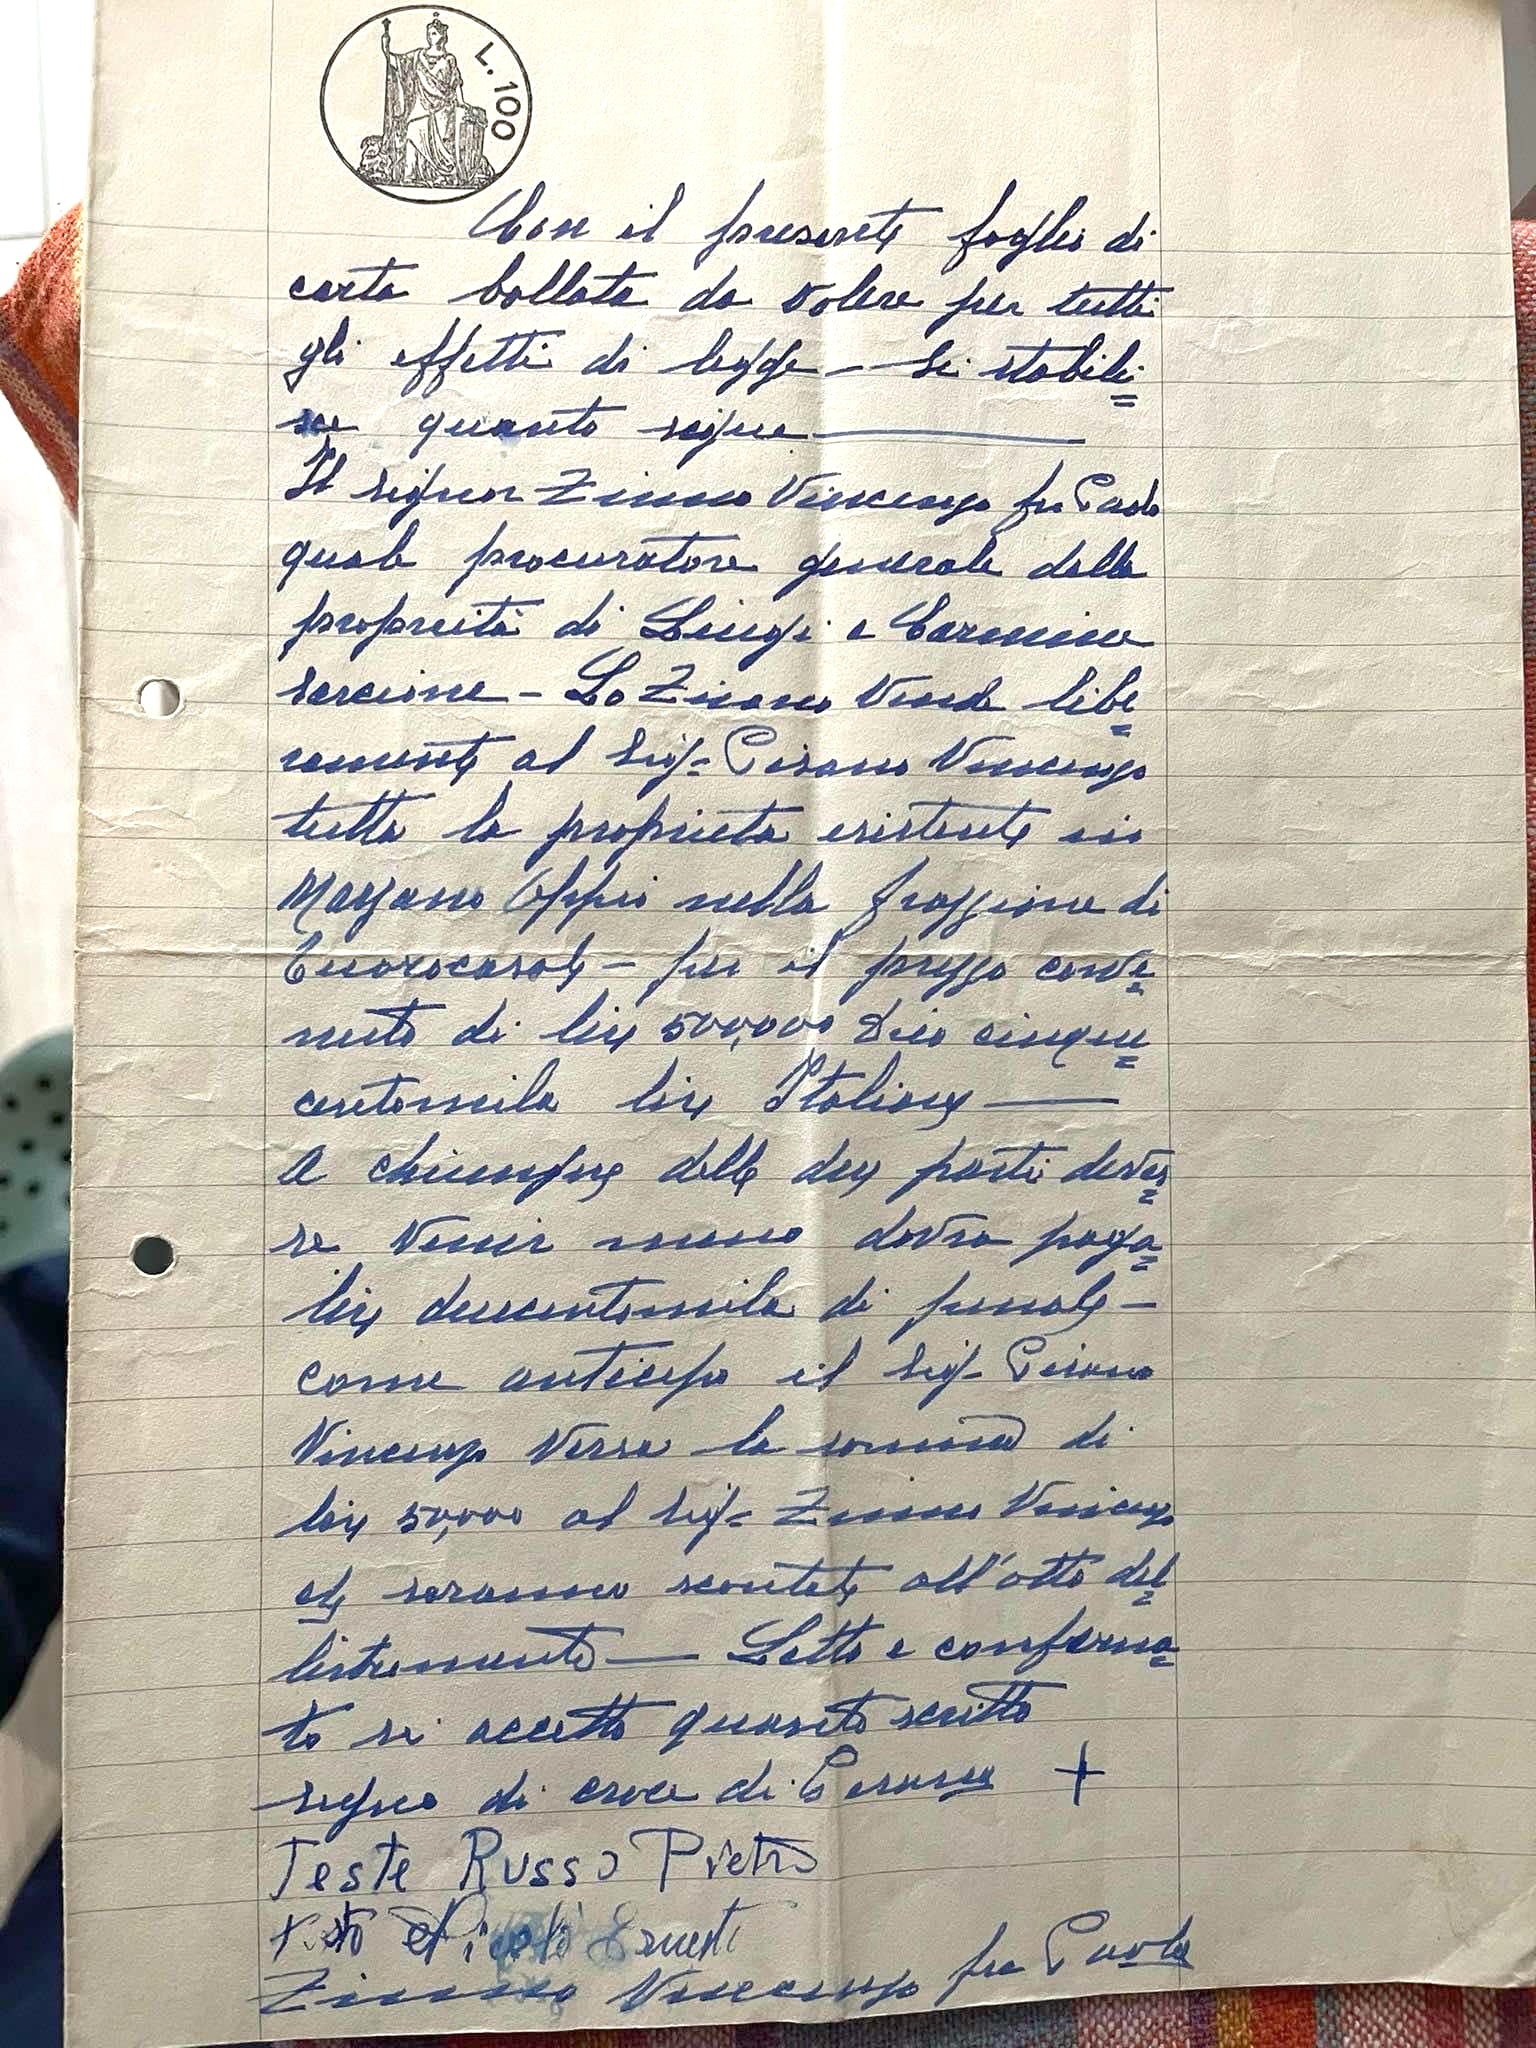 L. 100
Con il presente foglio di
carta bollata da valere per tutti
gli effetti di legge - Si stabili=
sce quanto segue
Il signor Zinno Vincenzo fu Paolo
quale procuratore generale della
proprietà di Luigi e Carmine
- Lo Zinno Vende libe=
ramente al Sig= Pisano Vincenzo
tutta la proprietà esistente in
Marzano Appio nella frazzione di
- per il prezzo conve=
nuto di lire 500,000 Dico cinque=
centomila lire Italiane
A chiunque delle due parti doves=
se Venir meno dovra paga=
lire duecentomila di penale -
come anticipo il Sig- Pisano
Vincenzo Versa la somma di
lire 50,000 al Sig= Zinno Vincenzo
che saranno scontate all'atto del=
listrumento - Letto e conferma=
to si accetta quanto scritto
segno di croce di Pisano +
Teste Russo Pietro
Zinno Vincenzo fu Paolo